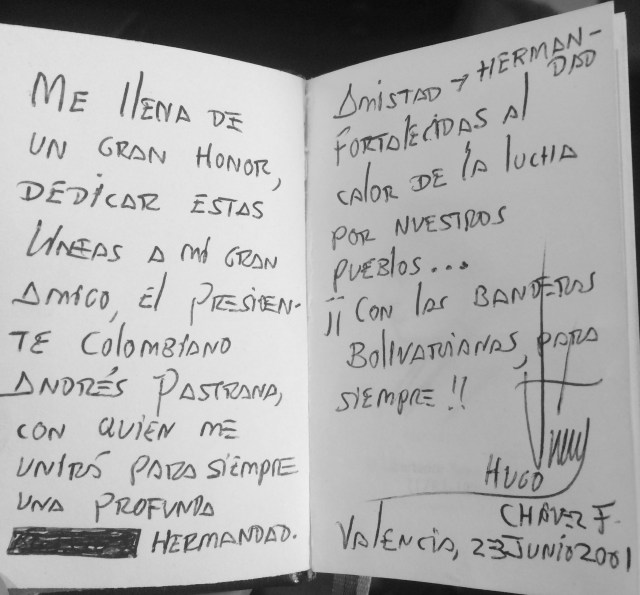 ME LLENA DE
UN GRAN HONOR,
DEDICAR ESTAS
LÍNEAS A MI GRAN
AMIGO, EL PRESIDEN-
TE COLOMBIANO
ANDRÉS PASTRANA,
CON QUIEN ME
UNIRÁ PARA SIEMPRE
UNA PROFUNDA
HERMANDAD.
AMISTAD Y HERMAN-
DAD
FORTALECIDAS AL
CALOR DE LA LUCHA
POR NUESTROS
PUEBLOS...
¡¡ CON LAS BANDERAS
BOLIVARIANAS, PARA
SIEMPRE !!
HUGO
CHÁVEZ F.
VALENCIA, 23 JUNIO 2001